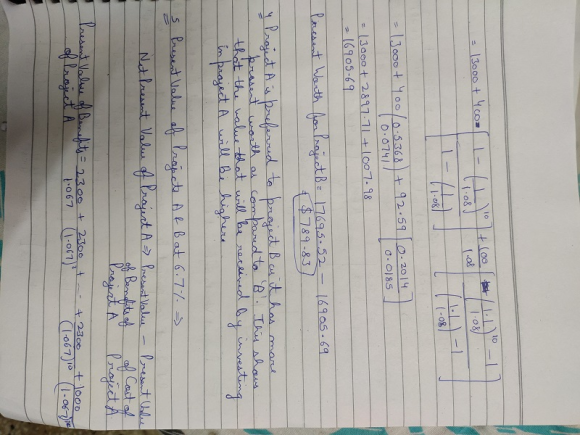 = 13000 + 400 [ 1 - (1/1.08)^10 / 1 - (1/1.08) ] + 100/1.08 [ (1.1/1.08)^10 - 1 / (1.1/1.08) - 1 ]
= 13000 + 400 (0.5368/0.0741) + 92.59 [ 0.2014/0.0185 ]
= 13000 + 2897.71 + 1007.98
= 16905.69
Present Worth for Project B = 17695.52 - 16905.69
= $789.83
4 Project A is preferred to project B as it has more
present worth as compared to 'B'. This shows
that the value that will be received by investing
in project A will be higher.
5 Present Value of Projects A & B at 6.7% ⇒
Net Present Value of Project A ⇒ Present Value - Present Value
of Benefits of of Cost of
Project A Project A
Present Value of Benefits = 2300/1.067 + 2300/(1.067)² + - - + 2300/(1.067)^10 + 1000/(1.067)^10
of Project A